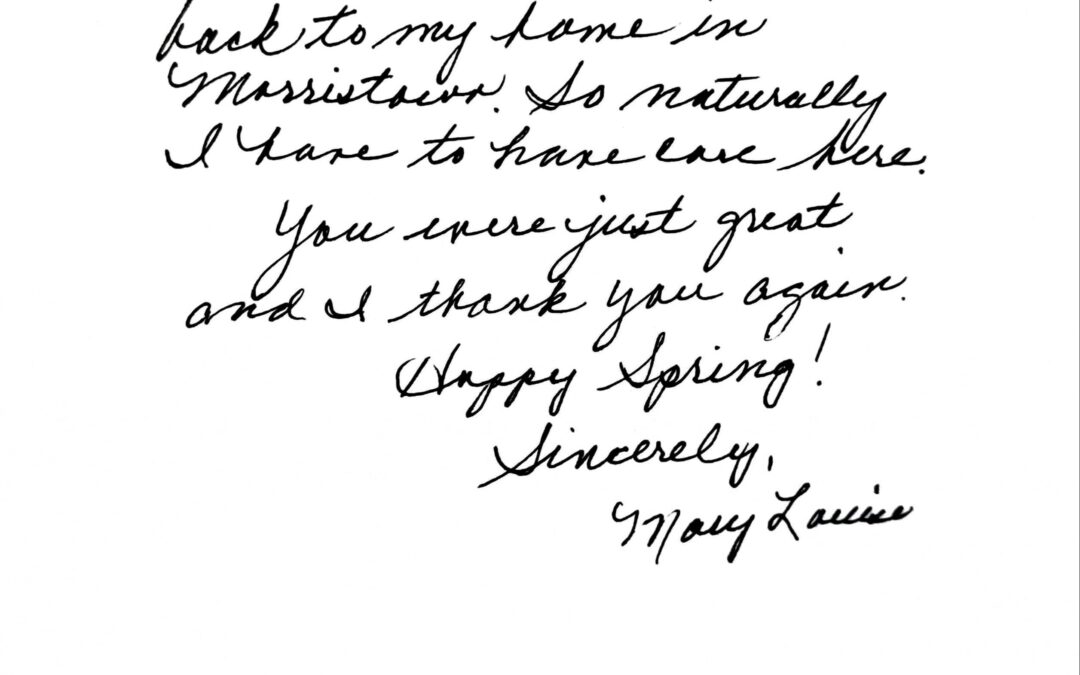 back to my home in
Morristown. So naturally
I have to have care here.
You were just great
and I thank you again.
Happy Spring!
Sincerely,
Mary Louise